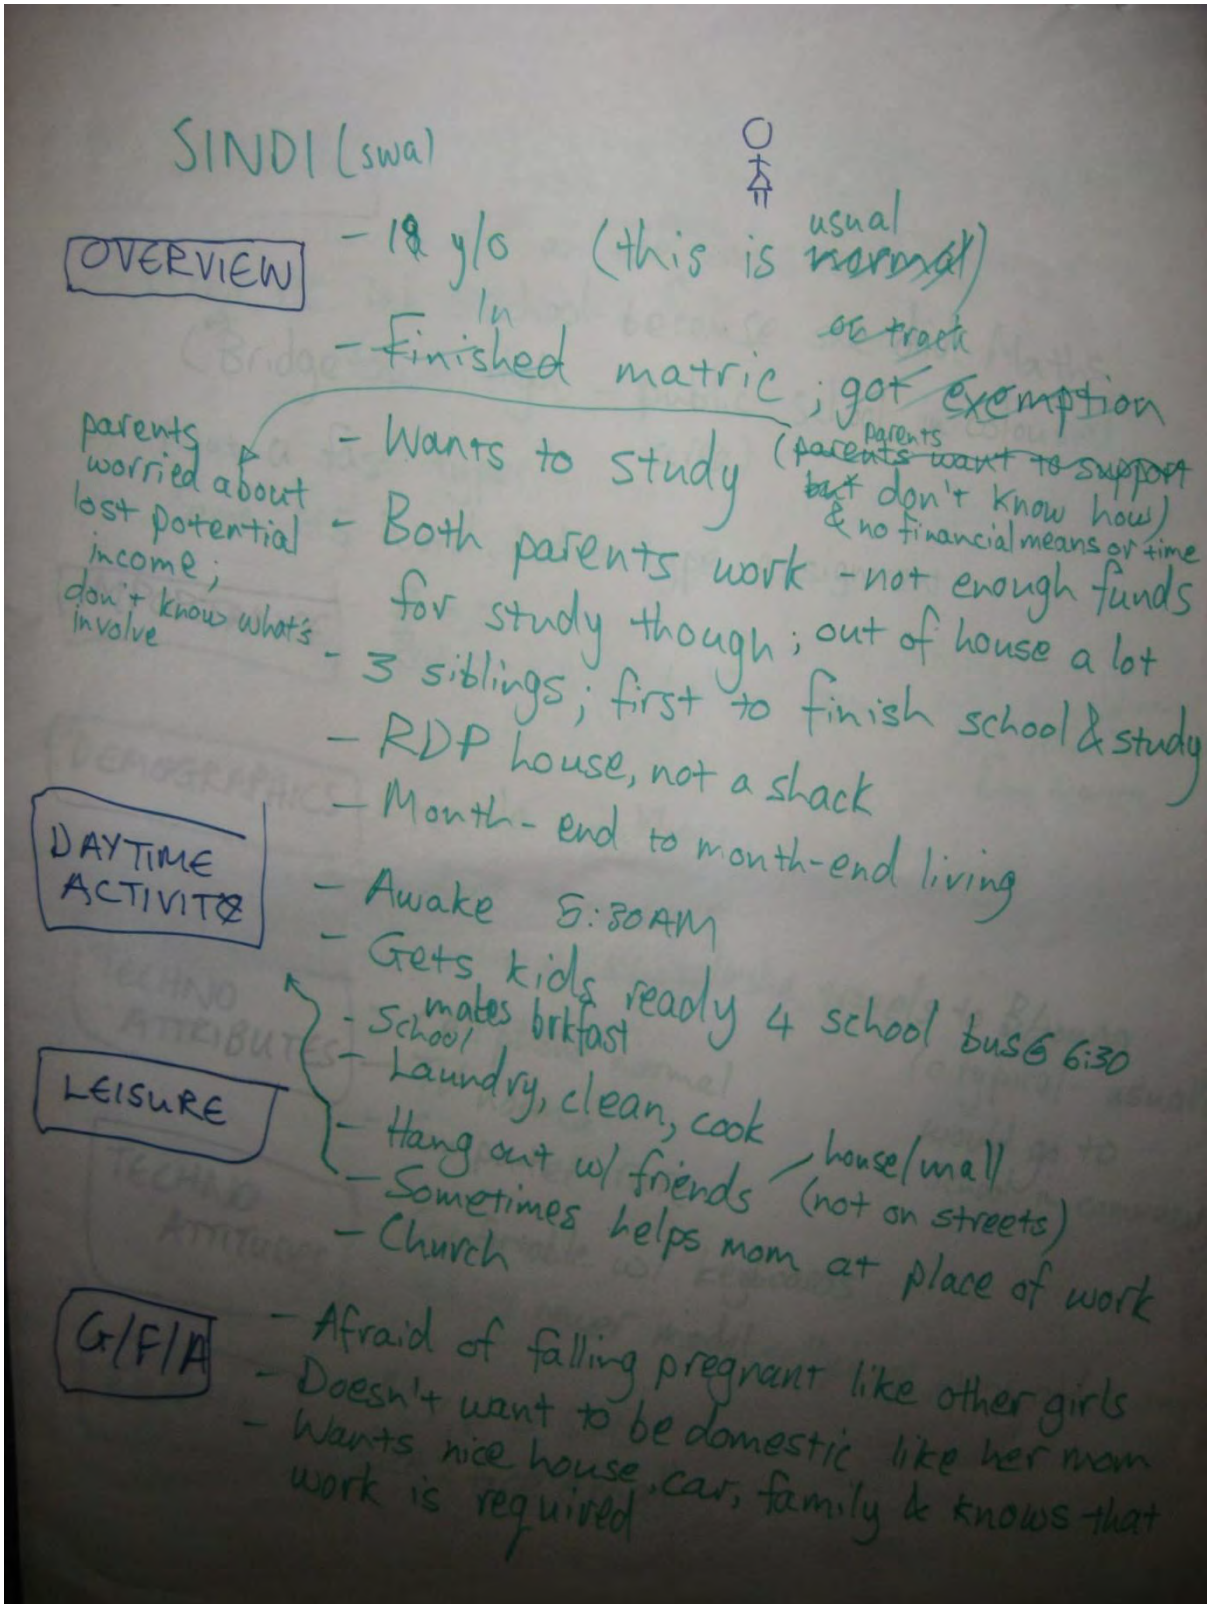 SINDI (swa)
OVERVIEW
- 18 y/o (this is normal) usual
In
- Finished matric ; got exemption
on track
- Wants to study (parents want to support
parents
but don't know how)
& no financial means or time
parents
worried about
lost potential
income;
don't know what's
involve
- Both parents work - not enough funds
for study though ; out of house a lot
- 3 siblings; first to finish school & study
- RDP house, not a shack
- Month-end to month-end living
DAYTIME
ACTIVIT
- Awake 5:30AM
- Gets kids ready 4 school bus 6:30
makes brkfast
- School
- Laundry, clean, cook
LEISURE
- Hang out w/ friends house/mall
(not on streets)
- Sometimes helps mom at place of work
- Church
G/F/A
- Afraid of falling pregnant like other girls
- Doesn't want to be domestic like her mom
- Wants nice house, car, family & knows that
work is required